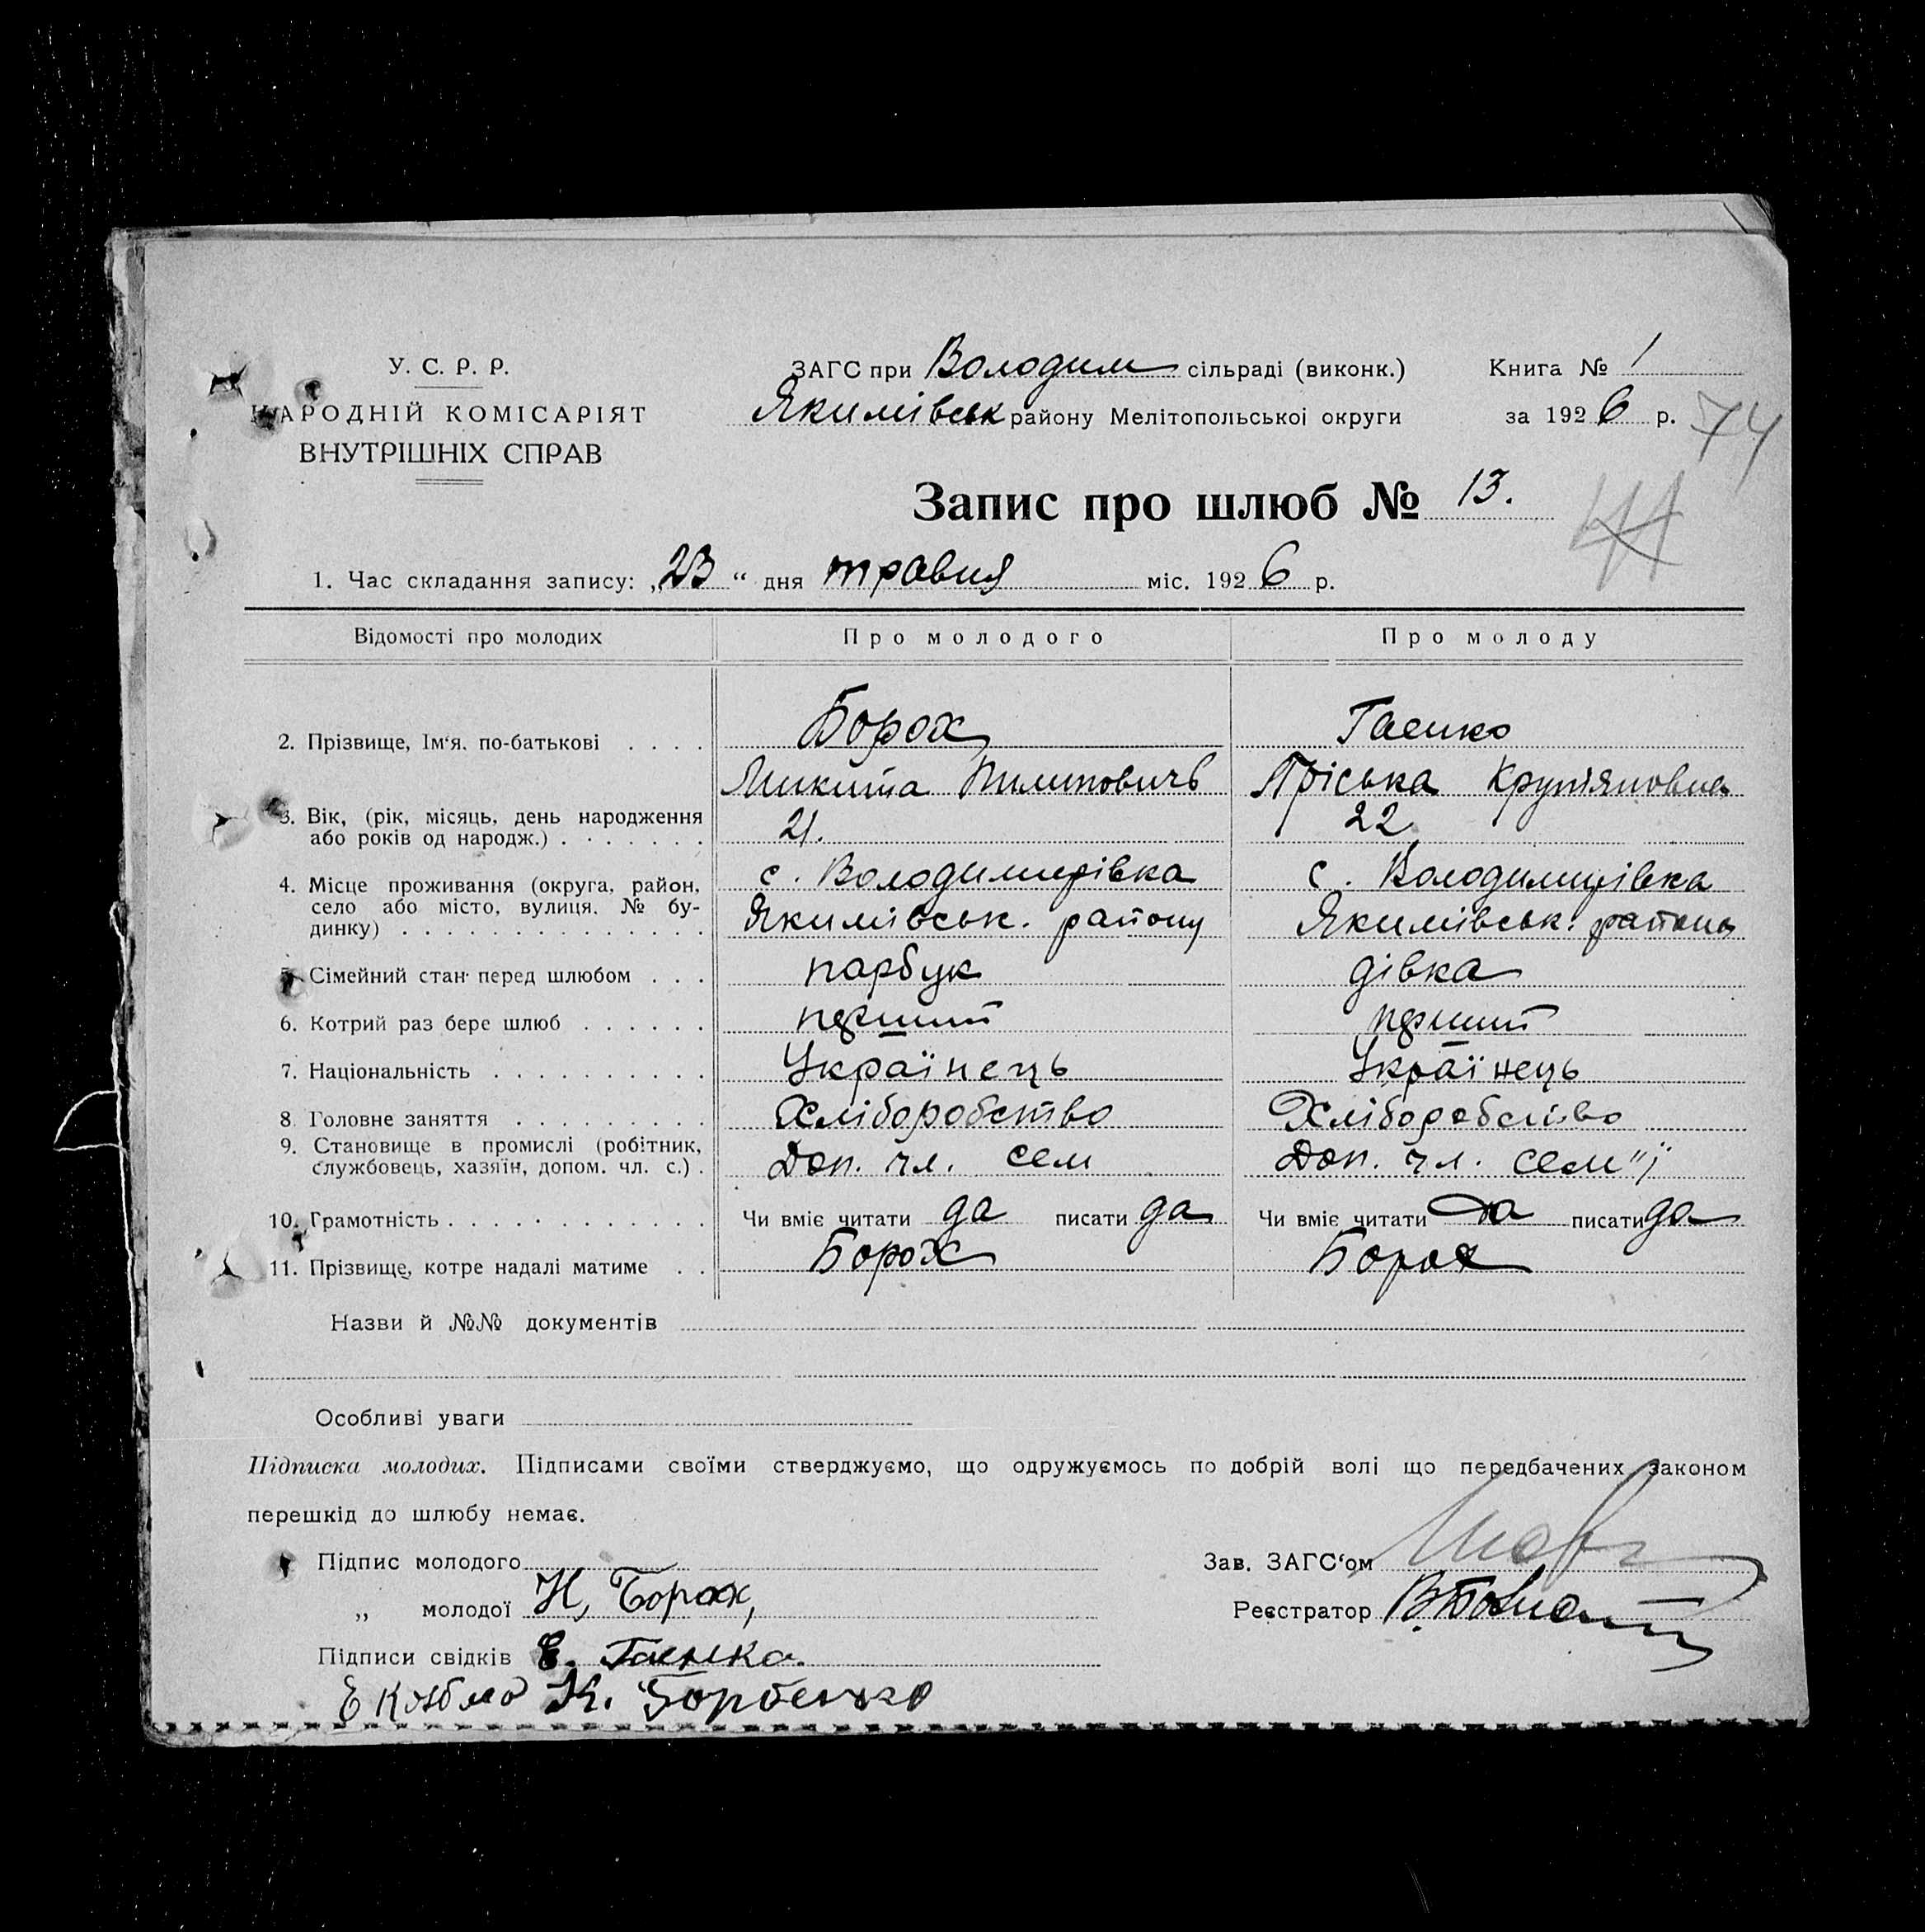 У. С. Р. Р.
НАРОДНІЙ КОМІСАРІЯТ
ВНУТРІШНІХ СПРАВ
ЗАГС при Володим сільраді (виконк.)
Якимівськ району Мелітопольської округи
Книга № 1
за 1926 р.
74
44
Запис про шлюб № 13.
1. Час складання запису: „23“ дня травня міс. 1926 р.
Відомості про молодих Про молодого Про молоду
2. Прізвище, Ім‘я, по-батькові . . . . Борох Гаенко
Микита Пилиповичь Пріська
3. Вік, (рік, місяць, день народження
або років од народж.) . . . . . . . 21. 22
4. Місце проживання (округа, район, с. Володимирівка с. Володимирівка
село або місто, вулиця, № бу-
динку) . . . . . . . . . . . . . . Якимівськ. району Якимівськ. району
5. Сімейний стан перед шлюбом . . . парбук дівка
6. Котрий раз бере шлюб . . . . . . перший перший
7. Національність . . . . . . . . . . Українець Українець
8. Головне заняття . . . . . . . . . Хліборобство Хліборобство
9. Становище в промислі (робітник,
службовець, хазяїн, допом. чл. с.) . Доп. чл. сем Доп. чл. сем"ї
10. Грамотність . . . . . . . . . . . . Чи вміє читати да писати да Чи вміє читати да писати да
11. Прізвище, котре надалі матиме . . Борох Борох
Назви й №№ документів
Особливі уваги
Підписка молодих. Підписами своїми стверджуємо, що одружуємось по добрій волі що передбачених законом
перешкід до шлюбу немає.
Підпис молодого
„ молодої Н, Борох,
Підписи свідків Е. Гаенка.
К. Горбенко
Зав. ЗАГС‘ом
Реєстратор